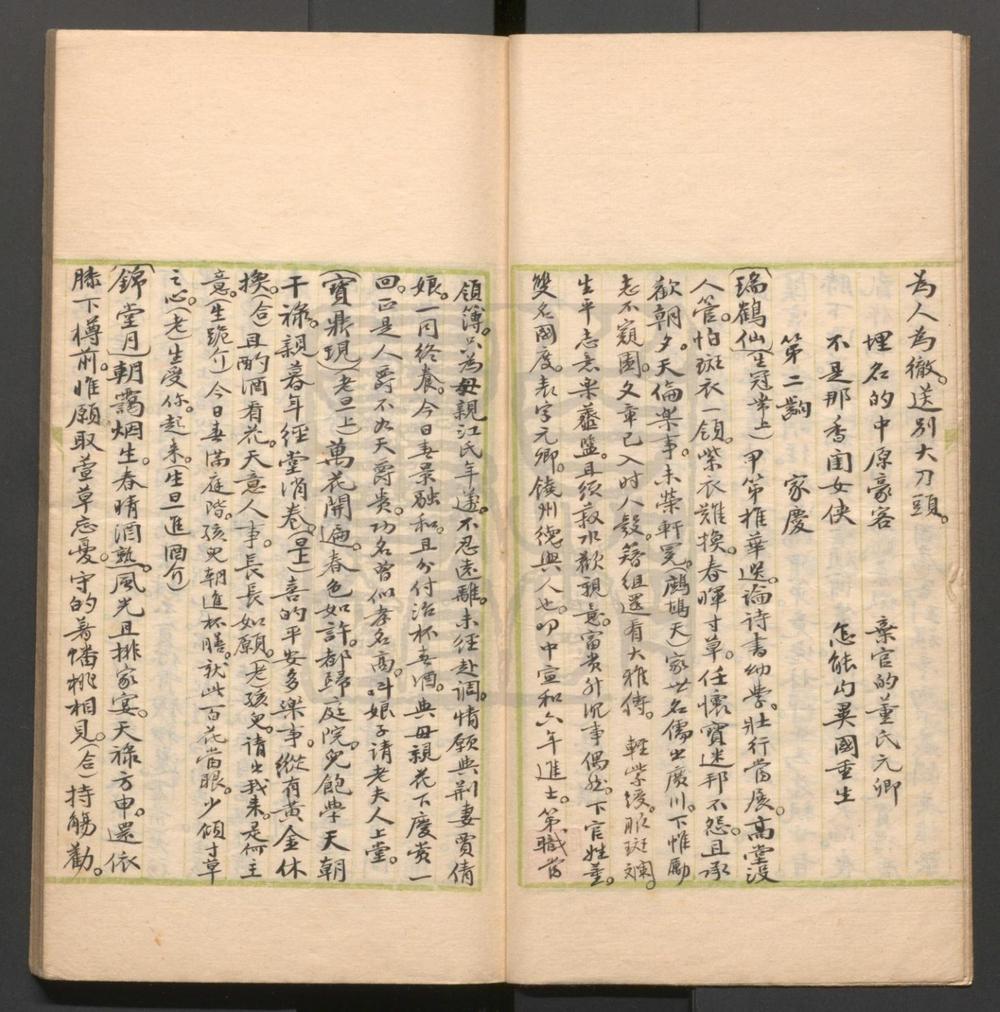 为人為徹。送別大刀頭。
埋名的中原豪客　棄官的董氏元卿
不是那香闺女俠　怎能勾異國重生
第二齣　家慶
(瑞鶴仙)(生冠帶上)甲第推華選。論詩書幼學。壯行當展。高堂沒
人管。怕斑衣一領。紫衣難換。春暉寸草。任懷寶迷邦不怨。且承
歡朝夕。天倫樂事。未榮軒冕。(鷓鴣天)家世名儒出廣川。下帷勵
志不窺園。文章已入時人彀。簪組還看大雅傳。　輕紫綬。服斑斕。
生平志意樂虀鹽。且須菽水歡親意。富貴升沉事偶然。下官姓董。
雙名國度。表字元卿。饒州德興人也。叨中宣和六年進士。第職當
領簿。只為母親江氏年邁。不忍遠離。未經赴調。情願與荊妻賈倩
娘。一同終養。今日春景融和。且分付治杯春酒。與母親花下慶賞一
回。正是人爵不如天爵貴。功名曾似孝名高。叫娘子請老夫人上堂。
(寶鼎現)(老旦上)萬花開遍。春色如許。都歸庭院。兒飽學天朝
干祿。親暮年經堂消卷。(旦上)喜的平安多樂事。縱有黃金休
換。(合)且酌酒看花。天意人事。長長如願。(老)孩兒。请出我来。是何主
意。(生跪介)今日春滿庭階。孩兒朝進杯膳。就此百花當眼。少傾寸草
之心。(老)生受你。起来。(生旦進酒介)
(錦堂月)朝靄烟生。春晴酒熟。風光且排家宴。天祿方申。還依
膝下樽前。惟願取萱草忘憂。守的着蟠桃相見。(合)持觴勸。